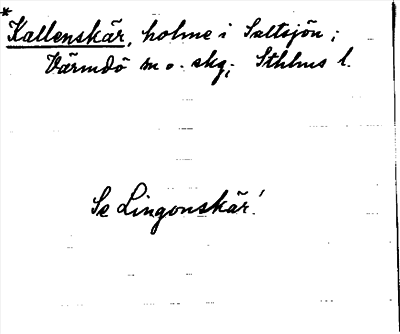 *Kallenskär, holme i Saltsjön;
Värmdö sn o. skg; Sthlms l.
Se Lingonskär!